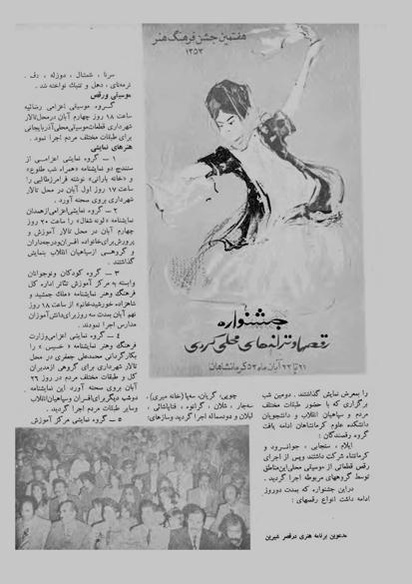 هفتمین جشن فرهنگ هنر
۱۳۵۳
جشنواره
رقصها و ترانه‌های محلی کردی
۲۱ تا ۲۲ آبان ماه ۵۳ کرمانشاهان
را بمعرض نمایش گذاشتند . دومین شب
برگزاری که با حضور طبقات مختلف
مردم و سپاهیان انقلاب و دانشجویان
دانشکده علوم کرمانشاهان ادامه یافت
گروه رقصندگان :
ایلام ، سنجابی ، جوانرود و
کرمانشاه شرکت داشتند وپس از اجرای
رقص قطعاتی از موسیقی محلی‌این‌مناطق
توسط گروههای مربوطه اجرا گردید .
دراین جشنواره که بمدت دوروز
ادامه داشت انواع رقصهای :
چوپی، گریان، سه‌پا (خانه میری)،
سه‌جار ، شلان ، گرانوه ، فتاپاشائی ،
لبلان و دودسماله اجرا گردید وسازهای:
سرنا ، شمشال ، دوزله ، دف .
نرمه‌نای ، دهل و تنبک نواخته شد .
موسیقی ورقص
گروه موسیقی اعزامی رضائیه
ساعت ۱۸ روز چهارم آبان درمحل‌تالار
شهرداری قطعات‌موسیقی‌محلی‌آذربایجانی
برای طبقات مختلف مردم اجرا نمود .
هنرهای نمایشی
۱ – گروه نمایشی اعزامی از
سنندج دو نمایشنامه «همراه شب طلوع»
و «خانه بارانی» نوشته فرامرزطالبی را
ساعت ۱۷ روز اول آبان در محل تالار
شهرداری بروی صحنه آورد .
۲ – گروه نمایشی‌اعزامی‌ازهمدان
نمایشنامه «لونه شغال» را ساعت ۲۰ روز
چهارم آبان در محل تالار آموزش و
پرورش‌برای‌خانواده افسران‌ودرجه‌داران
و گروهسی ازسپاهیان انقلاب بنمایش
گذاشتند .
۳ – گروه کودکان ونوجوانان
وابسته به مرکز آموزش تئاتر اداره کل
فرهنگ وهنر نمایشنامه «ملک جمشید و
شاهزاده خورشیدخانم» از ساعت ۱۸ روز
نهم آبان بمدت سه روزبرای‌دانش‌آموزان
مدارس اجرا نمودند .
۴ – گروه نمایشی اعزامی‌وزارت
فرهنگ وهنر نمایشنامه « خسیس » را
بکارگردانی محمدعلی جعفری در محل
تالار شهرداری برای گروهی ازمدیران
کل و طبقات مختلف مردم در روز ۲۶
آبان بروی صحنه آورد این نمایشنامه
دوشب دیگربرای‌افسران وسپاهیان‌انقلاب
وسایر طبقات مردم اجرا گردید .
۵ – گروه نمایشی مرکز آموزش
مدعوین برنامه هنری درقصر شیرین